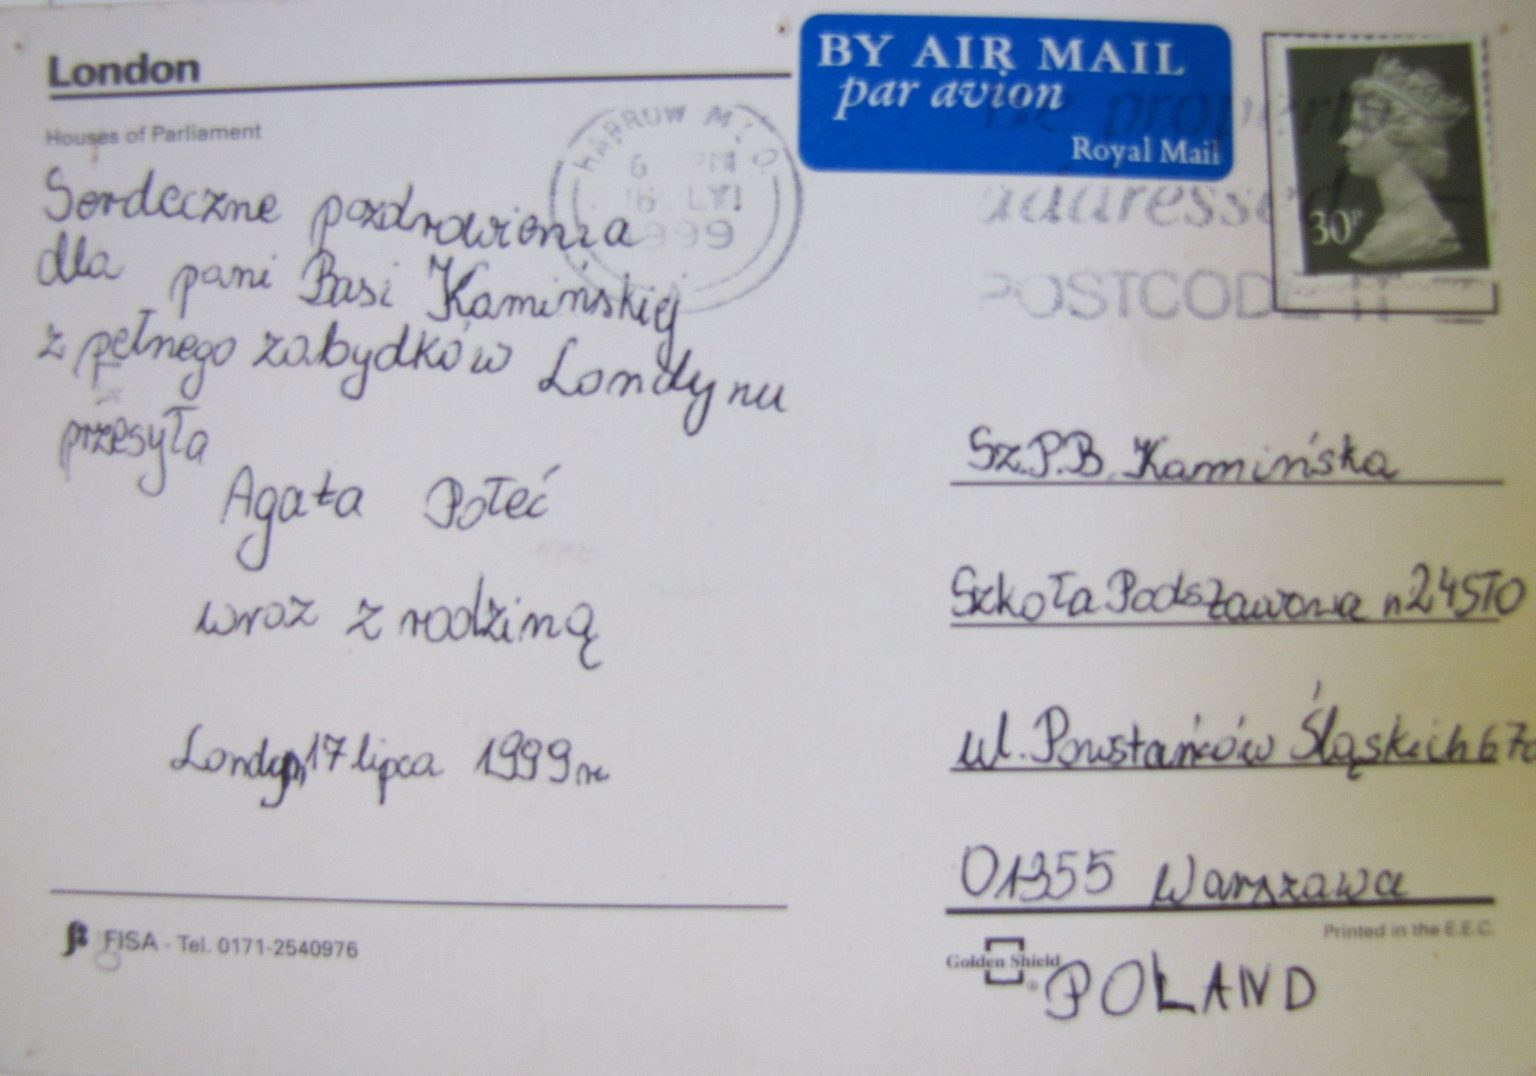 London
Houses of Parliament
Serdeczne pozdrowienia
dla pani Basi Kamińskiej
z pełnego zabydków Londynu
przesyła
Agata Połeć
wraz z rodziną
Londyn, 17 lipca 1999 r.
FISA - Tel. 0171-2540976
HARROW M.L.O.
6 PM
1999
BY AIR MAIL
par avion
Royal Mail
30P
be properly
addressed
POSTCODE IT
Sz.P.B. Kamińska
Szkoła Podstawowa n 24 STO
ul. Powstańców Śląskich 67a
01355 Warszawa
Printed in the E.E.C.
Golden Shield
POLAND